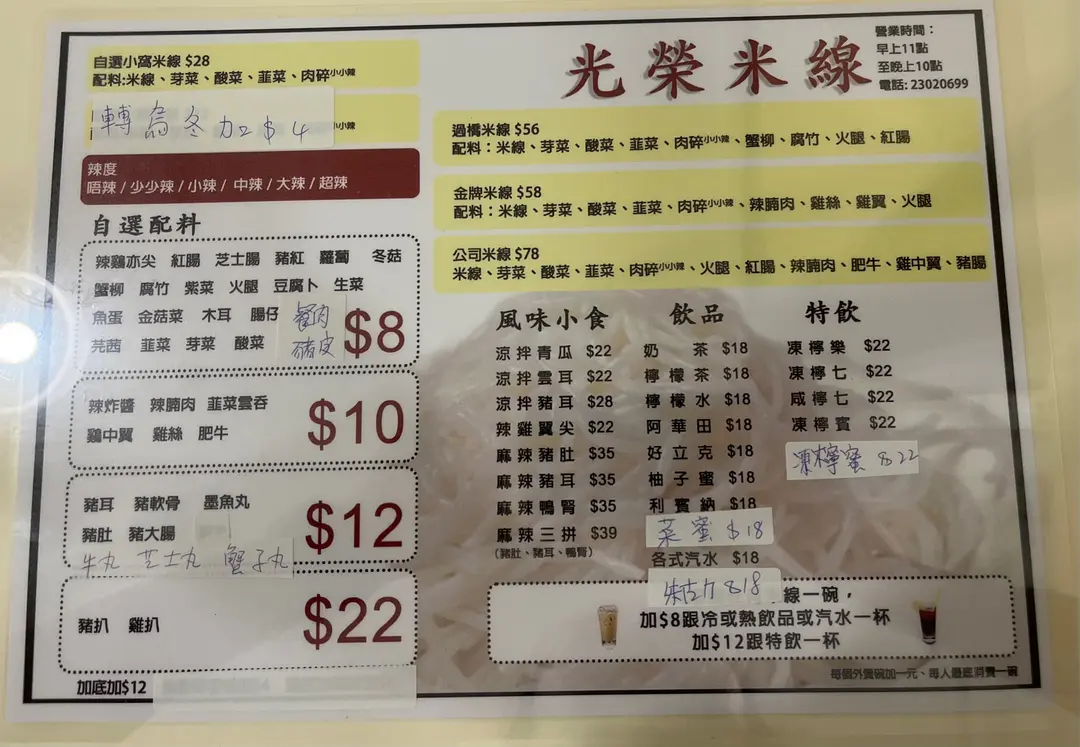 光榮米線
營業時間：
早上11點
至晚上10點
電話: 23020699
自選小窩米線 $28
配料:米線、芽菜、酸菜、韮菜、肉碎小小辣
轉烏冬加$4
小辣
辣度
唔辣 / 少少辣 / 小辣 / 中辣 / 大辣 / 超辣
自選配料
辣鷄亦尖 紅腸 芝士腸 豬紅 蘿蔔 冬菇
蟹柳 腐竹 紫菜 火腿 豆腐卜 生菜
魚蛋 金菇菜 木耳 腸仔 餐肉
芫茜 韮菜 芽菜 酸菜 豬皮
$8
辣炸醬 辣腩肉 韮菜雲吞
鷄中翼 雞絲 肥牛
$10
豬耳 豬軟骨 墨魚丸
豬肚 豬大腸
牛丸 芝士丸 蟹子丸
$12
豬扒 雞扒
$22
加底加$12
過橋米線 $56
配料：米線、芽菜、酸菜、韮菜、肉碎小小辣、蟹柳、腐竹、火腿、紅腸
金牌米線 $58
配料：米線、芽菜、酸菜、韮菜、肉碎小小辣、辣腩肉、雞絲、雞翼、火腿
公司米線 $78
米線、芽菜、酸菜、韮菜、肉碎小小辣、火腿、紅腸、辣腩肉、肥牛、雞中翼、豬腸
風味小食
涼拌青瓜 $22
涼拌雲耳 $22
涼拌豬耳 $28
辣雞翼尖 $22
麻辣豬肚 $35
麻辣豬耳 $35
麻辣鴨腎 $35
麻辣三拼 $39
(豬肚、豬耳、鴨腎)
飲品
奶茶 $18
檸檬茶 $18
檸檬水 $18
阿華田 $18
好立克 $18
柚子蜜 $18
利賓納 $18
菜蜜 $18
各式汽水 $18
朱古力 $18
特飲
凍檸樂 $22
凍檸七 $22
咸檸七 $22
凍檸賓 $22
凍檸蜜 $22
線一碗，
加$8跟冷或熱飲品或汽水一杯
加$12跟特飲一杯
每個外賣碗加一元、每人最底消費一碗